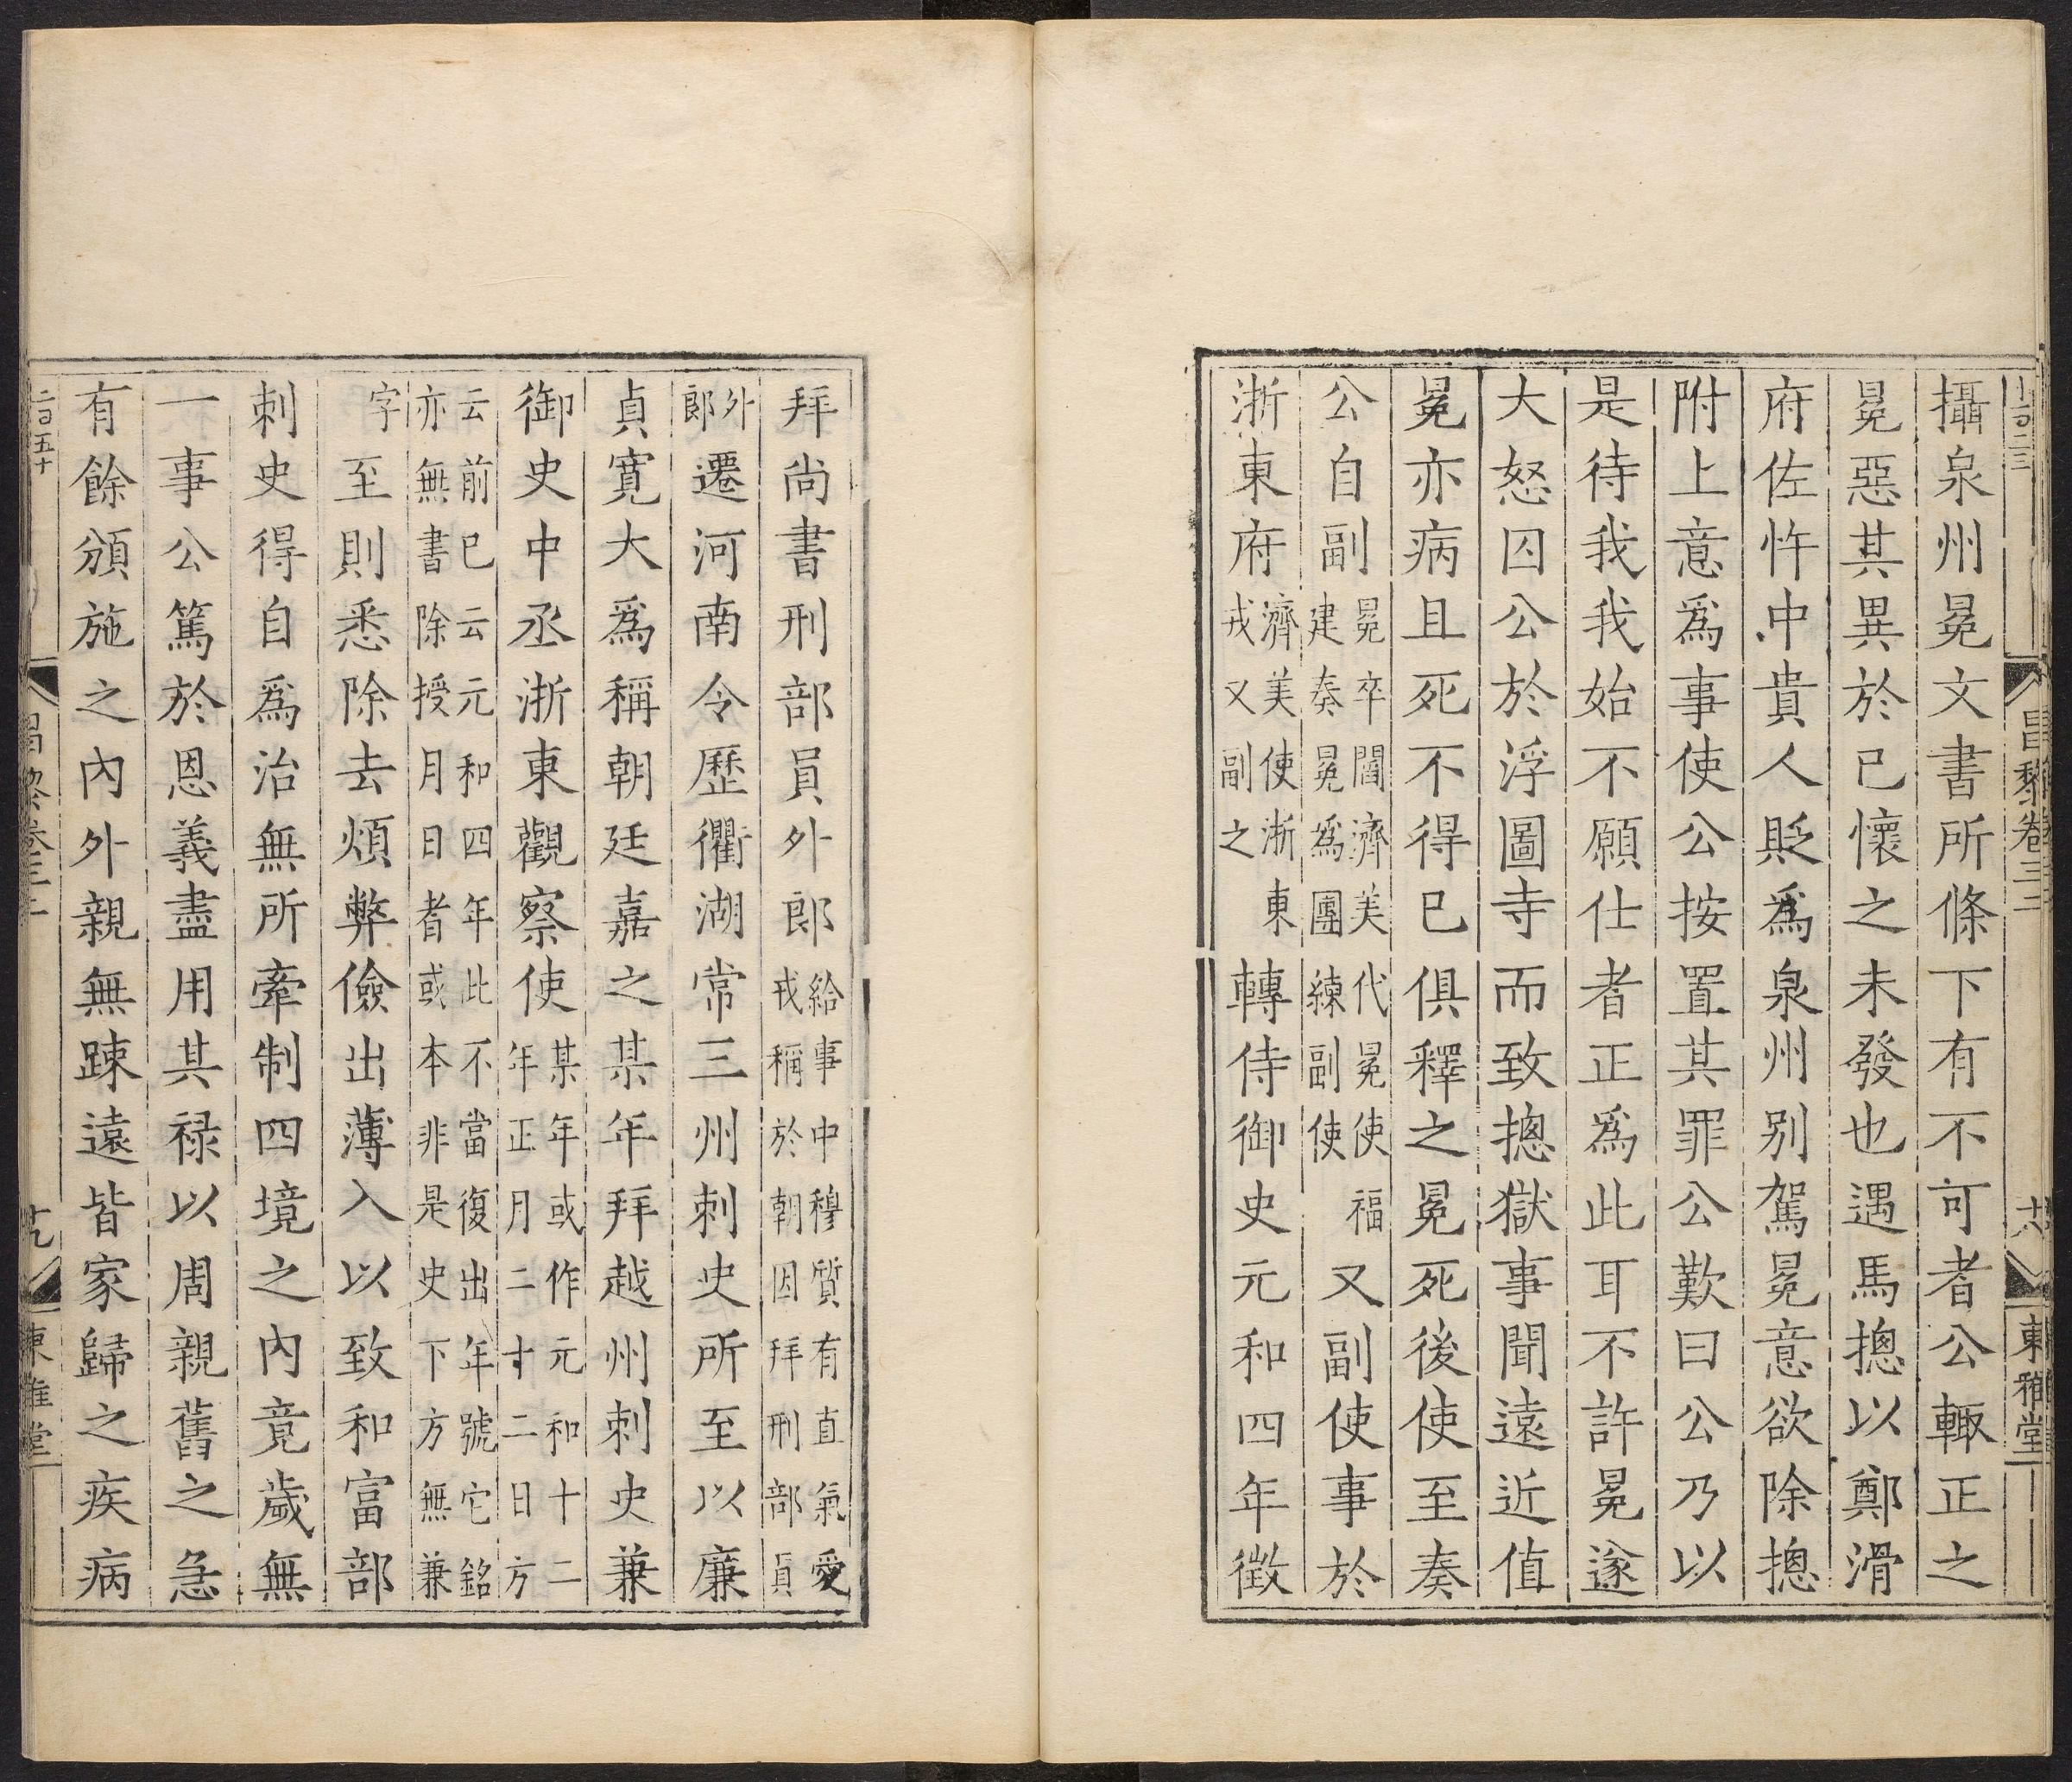 昌黎卷三三 十八 東雅堂
攝泉州冕文書所條下有不可者公輙正之
冕惡其異於已懷之未發也遇馬摠以鄭滑
府佐忤中貴人貶爲泉州别駕冕意欲除摠
附上意爲事使公按置其罪公歎曰公乃以
是待我我始不願仕者正爲此耳不許冕遂
大怒囚公於浮圖寺而致摠獄事聞遠近值
冕亦病且死不得已俱釋之冕死後使至奏
公自副冕卒閻濟美代冕使福建奏冕爲團練副使又副使事於
浙東府濟美使浙東戎又副之轉侍御史元和四年徵
拜尚書刑部員外郎給事中穆質有直氣愛戎稱於朝因拜刑部員
外郎遷河南令歷衢湖常三州刺史所至以廉
貞寬大爲稱朝廷嘉之某年拜越州刺史兼
御史中丞浙東觀察使某年或作元和十二年正月二十二日方
云前已云元和四年此不當復出年號它銘亦無書除授月日者或本非是史下方無兼
字至則悉除去煩弊儉出薄入以致和富部
刺史得自爲治無所牽制四境之内竟歲無
一事公篤於恩義盡用其禄以周親舊之急
有餘頒施之内外親無踈遠皆家歸之疾病
二百五十 昌黎卷三三 十九 東雅堂